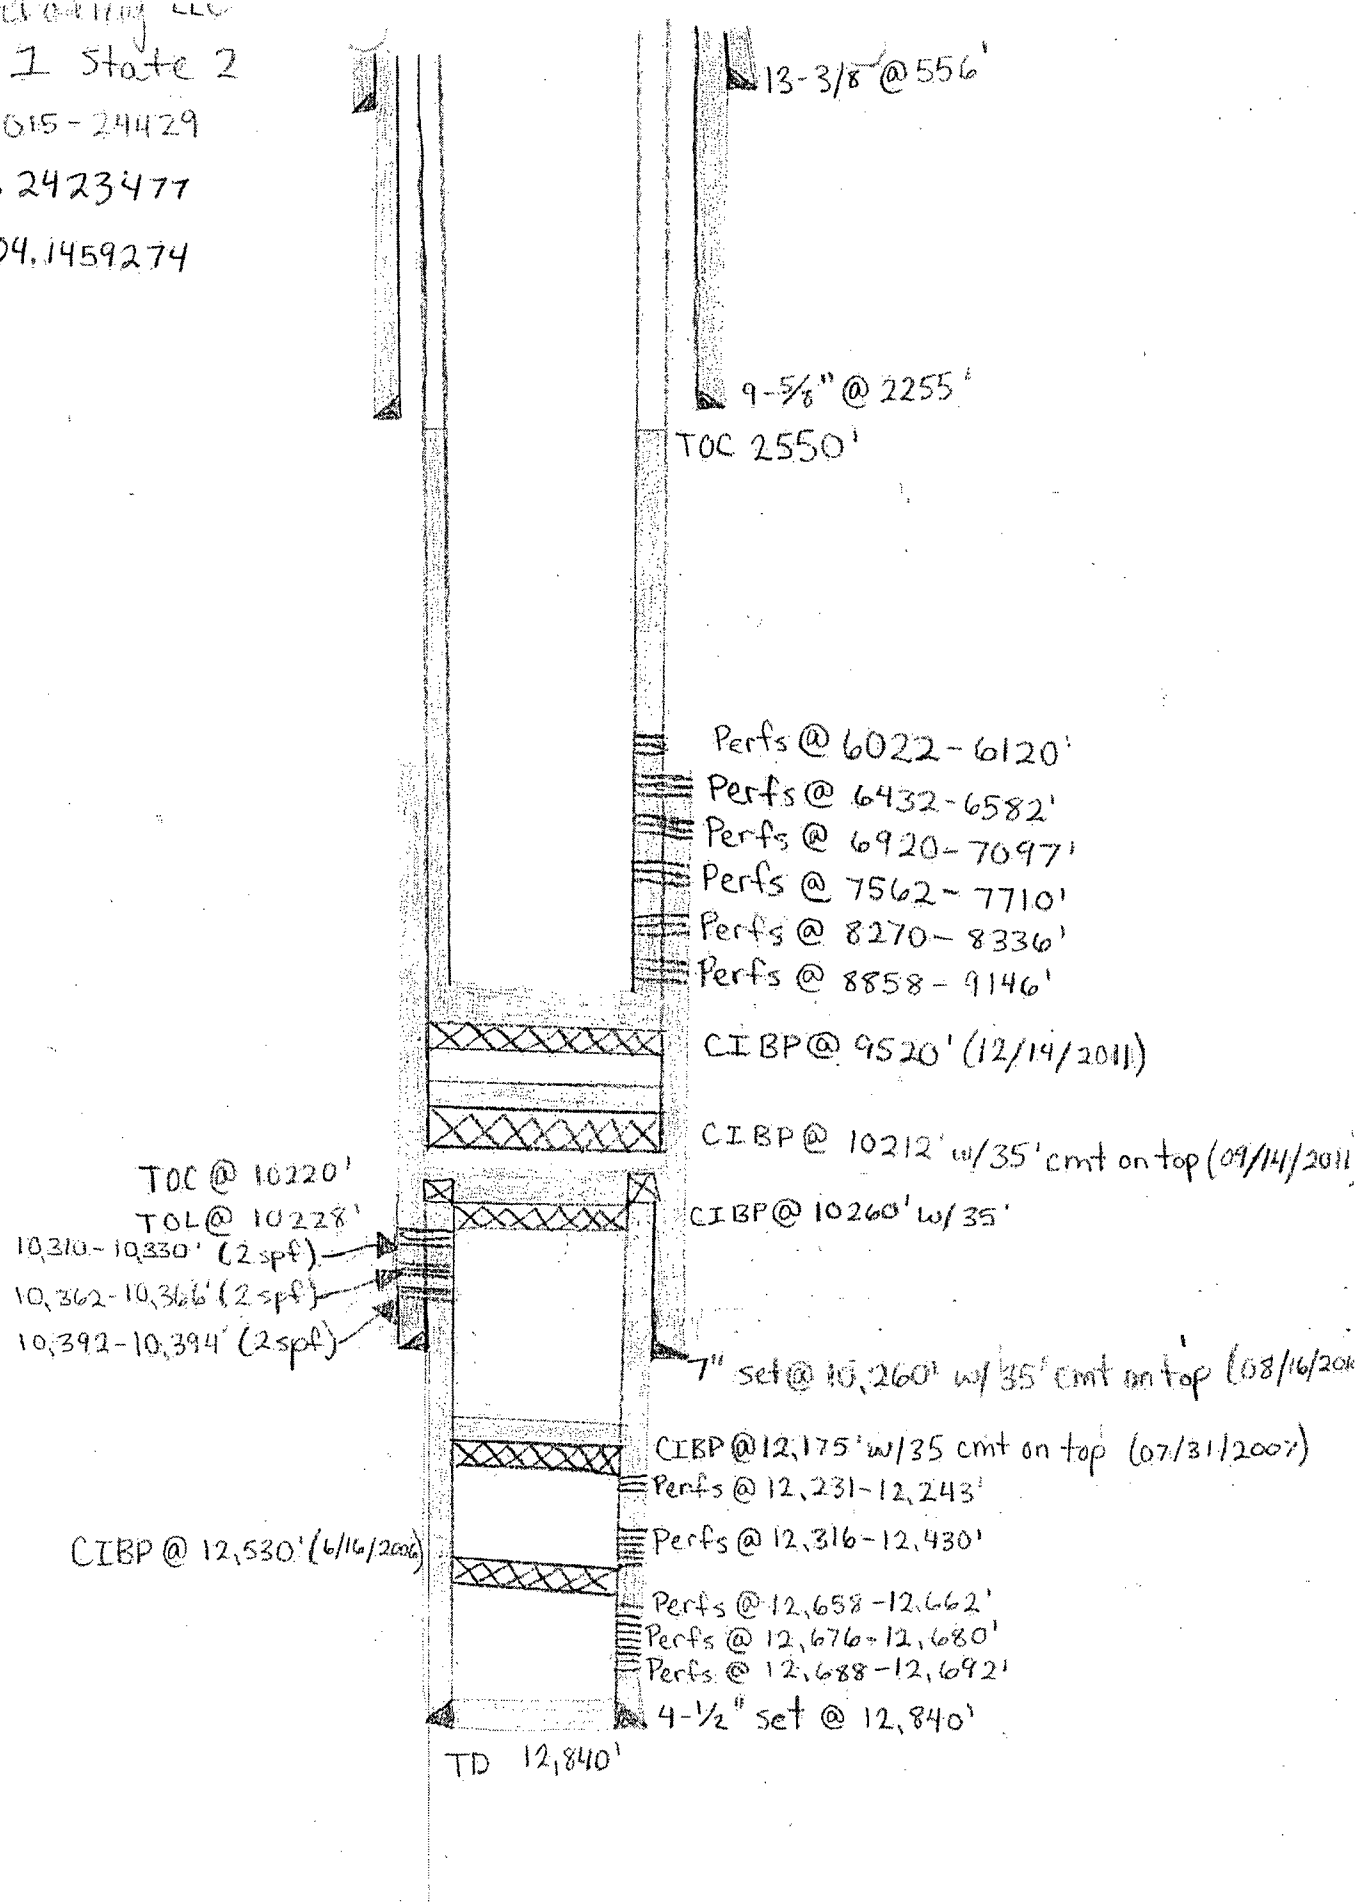 LLC
1 State 2
015-24429
2423477
04.1459274
13-3/8" @ 556'
9-5/8" @ 2255'
TOC 2550'
Perfs @ 6022-6120'
Perfs @ 6432-6582'
Perfs @ 6920-7097'
Perfs @ 7562-7710'
Perfs @ 8270-8336'
Perfs @ 8858-9146'
CIBP @ 9520' (12/14/2011)
CIBP @ 10212' w/35' cmt on top (09/14/2011
TOC @ 10220'
TOL @ 10228'
CIBP @ 10260' w/35'
10,310-10,330' (2spf)
10,362-10,366' (2spf)
10,392-10,394' (2spf)
7" set @ 10,260' w/35' cmt on top (08/16/20
CIBP @ 12,175' w/35 cmt on top (07/31/2007)
Perfs @ 12,231-12,243'
Perfs @ 12,316-12,430'
CIBP @ 12,530' (6/16/2006)
Perfs @ 12,658-12,662'
Perfs @ 12,676-12,680'
Perfs @ 12,688-12,692'
4-1/2" set @ 12,840'
TD 12,840'